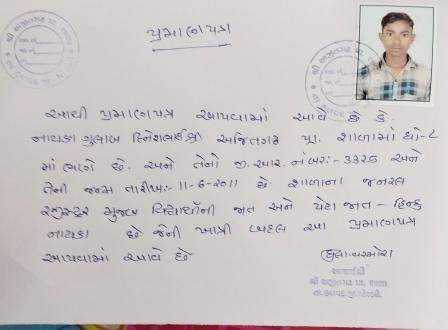 પ્રમાણપત્ર
આથી પ્રમાણપત્ર આપવામાં આવે છે કે.
નાયકા ગુલાબ દિનેશભાઈ શ્રી અજિતગઢ પ્રા. શાળામાં ધો-૮
માં ભણે છે. અને તેનો જી.આર. નંબર:- ૩૩૨૬ અને
તેની જન્મ તારીખ:- ૧૧-૬-૨૦૧૧ છે. શાળાના જનરલ
રજીસ્ટર મુજબ વિદ્યાર્થીની જાત અને પેટા જાત - હિન્દુ
નાયકા છે જેની ખાત્રી બદલ આ પ્રમાણપત્ર
આપવામાં આવે છે
આચાર્ય
શ્રી અજીતગઢ પ્રા. શાળા
તા.હળવદ જી.મોરબી.